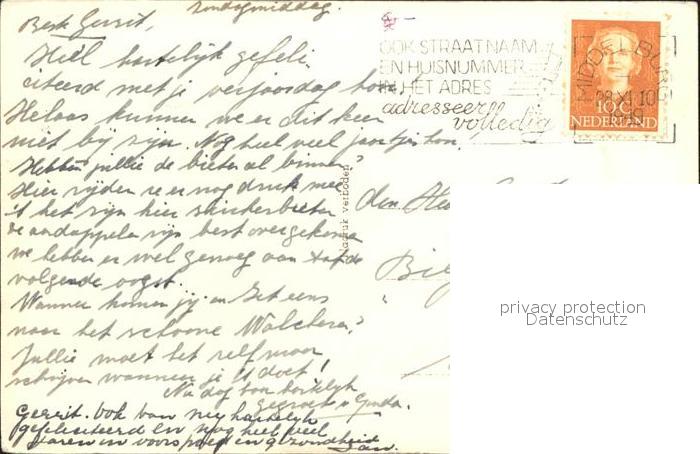 Zondagmiddag.
Beste Gerrit,
Heel hartelijk gefeli
citeerd met je verjaardag hoor!
Helaas kunnen we er dit keer
niet bij zijn. Nog heel veel jaartjes hoor.
Hebben jullie de bieten al binnen?
Hier rijden ze er nog druk mee
't het zijn hier suikerbieten
de aardappelen zijn best overgekomen
we hebben er wel genoeg aan tot de
volgende oogst.
Wanneer komen jij en eens
naar het schoone Walcheren?
Jullie moet het zelf maar
schrijven wanneer je 't doet!
Nu dag hoor hartelijk
gegroet
Gerrit. Ook van mij hartelijk
gefeliciteerd en nog heel veel
jaren in voorspoed en gezondheid
Jan.
OOK STRAATNAAM
EN HUISNUMMER
IN HET ADRES
adresseer
volledig
MIDDELBURG
28 XI 10
10 C
NEDERLAND
Nadruk verboden
den
privacy protection
Datenschutz